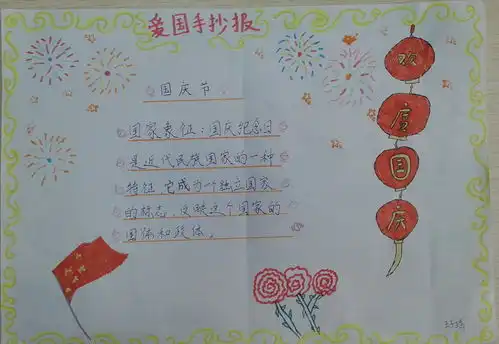 爱国手抄报
国庆节.
国家象征:国庆纪念日
是近代民族国家的一种
特征,它成为一个独立国家
的标志,反映这个国家的
国体和政体。
欢
度
国
庆